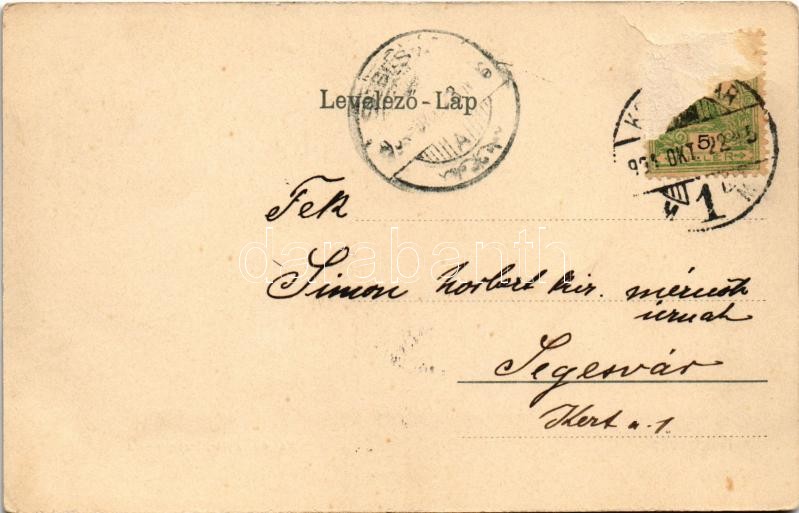 Levelező-Lap
5
901 OKT. 22
1
A
Tek
Simon Norbert kir. mérnök
úrnak
Segesvár
Kert u. 1.
darabanth